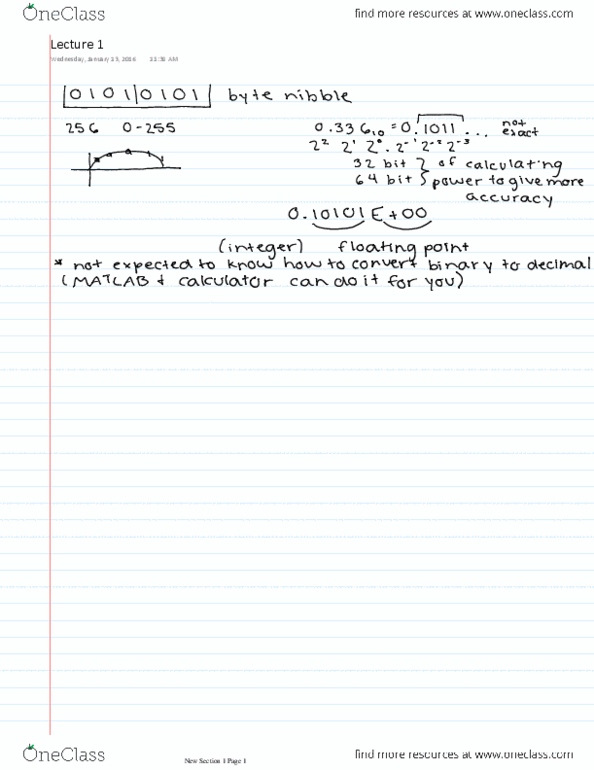 OneClass
find more resources at www.oneclass.com
Lecture 1
Wednesday, January 13, 2016
0101|0101 byte nibble
256 0-255
0.336₁₀ = 0.1011... not exact
2² 2¹ 2⁰. 2⁻¹ 2⁻² 2⁻³
32 bit } of calculating
64 bit } power to give more
accuracy
0.10101E+00
(integer) floating point
* not expected to know how to convert binary to decimal
(MATLAB + calculator can do it for you)
OneClass
find more resources at www.oneclass.com
New Section 1 Page 1